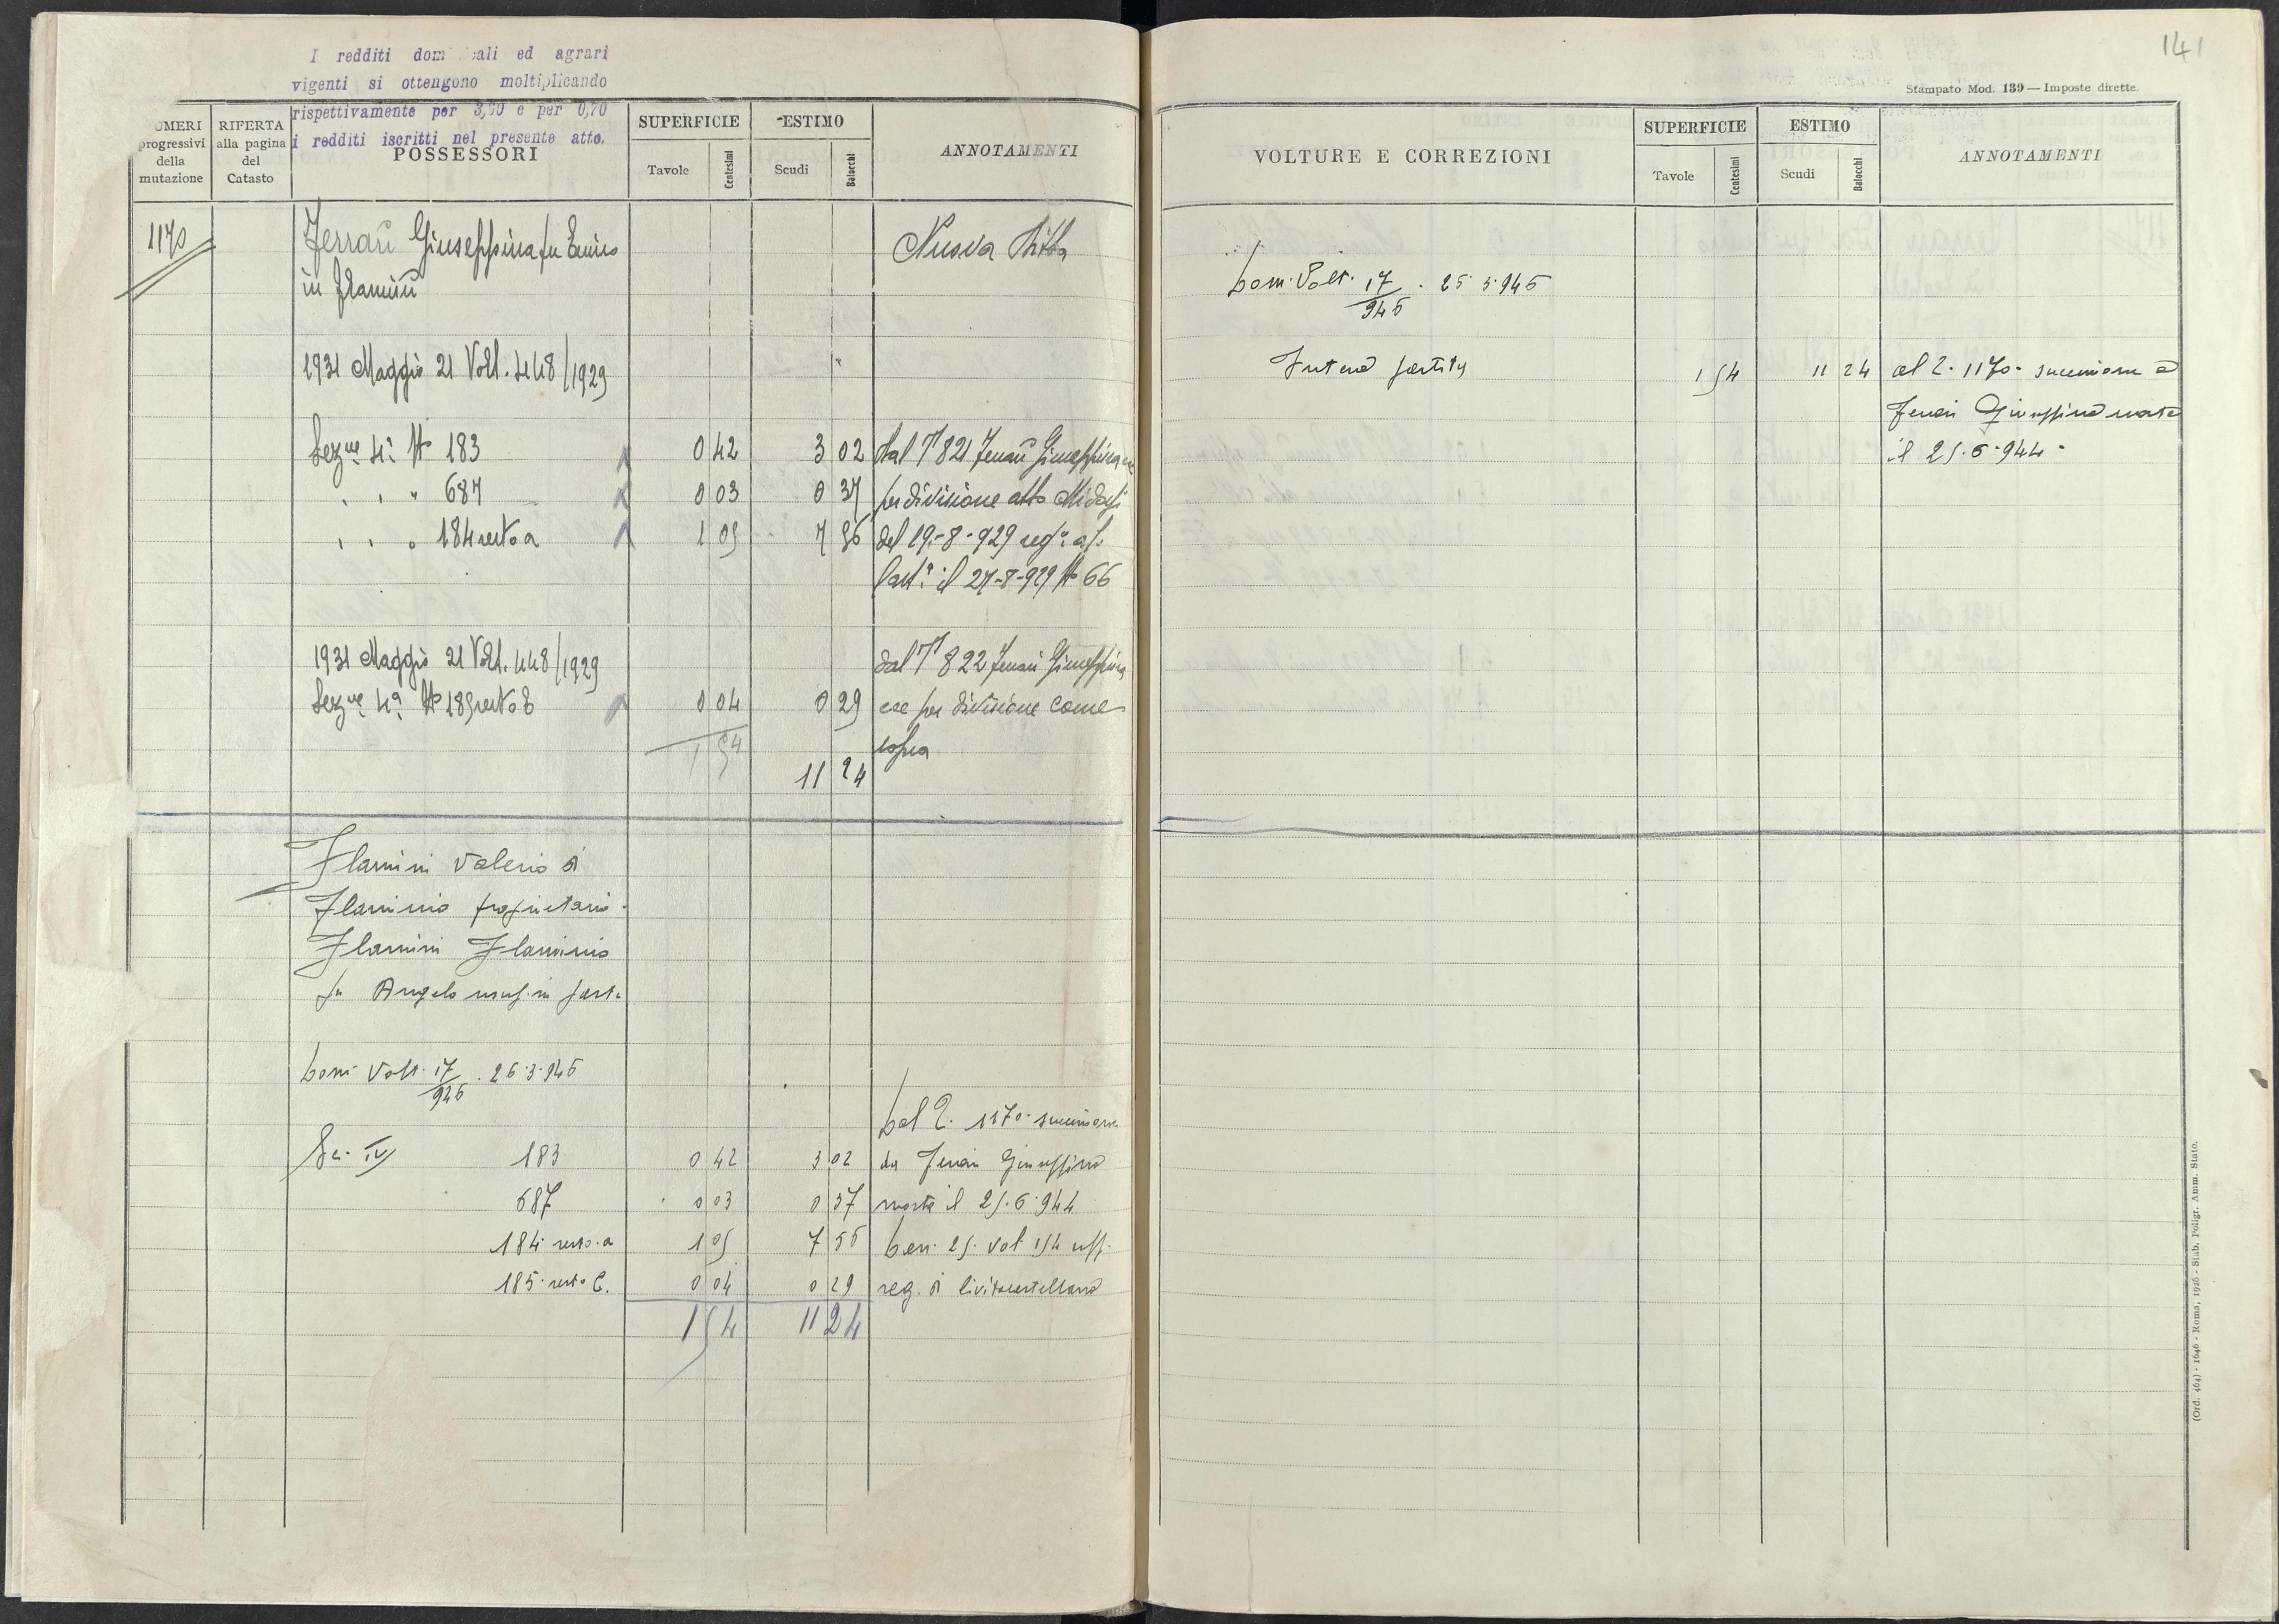 I redditi dom cali ed agrari
vigenti si ottengono moltiplicando
rispettivamente per 3,50 e per 0,70
i redditi iscritti nel presente atto.
UMERI progressivi della mutazione
RIFERTA alla pagina del Catasto
POSSESSORI
SUPERFICIE
Tavole
Centesimi
ESTIMO
Scudi
Baiocchi
ANNOTAMENTI
1170
Ferrari Giuseppina fu Enrico
in Flamini
Nuova Ditta
1931 Maggio 21 Volt. 448/1929
Sez.ne 4ª N° 183 0 42 3 02 dal 821 Ferrari Giuseppina
" " " 687 0 03 0 37 per divisione atto Midossi
" " " 184 resto a 1 05 7 56 del 19-8-929 reg.º a
Cast.ª il 27-8-929 N° 66
1931 Maggio 21 Volt. 448/1929 dal 822 Ferrari Giuseppina
Sez.ne 4ª N° 185 resto 0 04 0 29 ecc per divisione come
1 54 sopra
11 24
Flamini Valerio di
Flaminio proprietario
Flamini Flaminio
fu Angelo usuf. in parte
Volt. 17/945 . 25.3.945
Dal 1170 successione
Sez. IV 183 0 42 3 02 da Ferrari Giuseppina
687 0 03 0 37 morta il 25.6.944
184 resto a 1 05 7 56 den. 25. vol 154 uff.
185 resto 0 04 0 29 reg. di Civitacastellana
1 54 11 24
141
Stampato Mod. 139 — Imposte dirette.
VOLTURE E CORREZIONI
SUPERFICIE
Tavole
Centesimi
ESTIMO
Scudi
Baiocchi
ANNOTAMENTI
Volt. 17/945 . 25 3.945
Intera partita 1 54 11 24 al 1170 successione di
Ferrari Giuseppina morta
il 25.6.944
(Ord. 464) - 1646 - Roma, 1926 - Stab. Poligr. Amm. Stato.